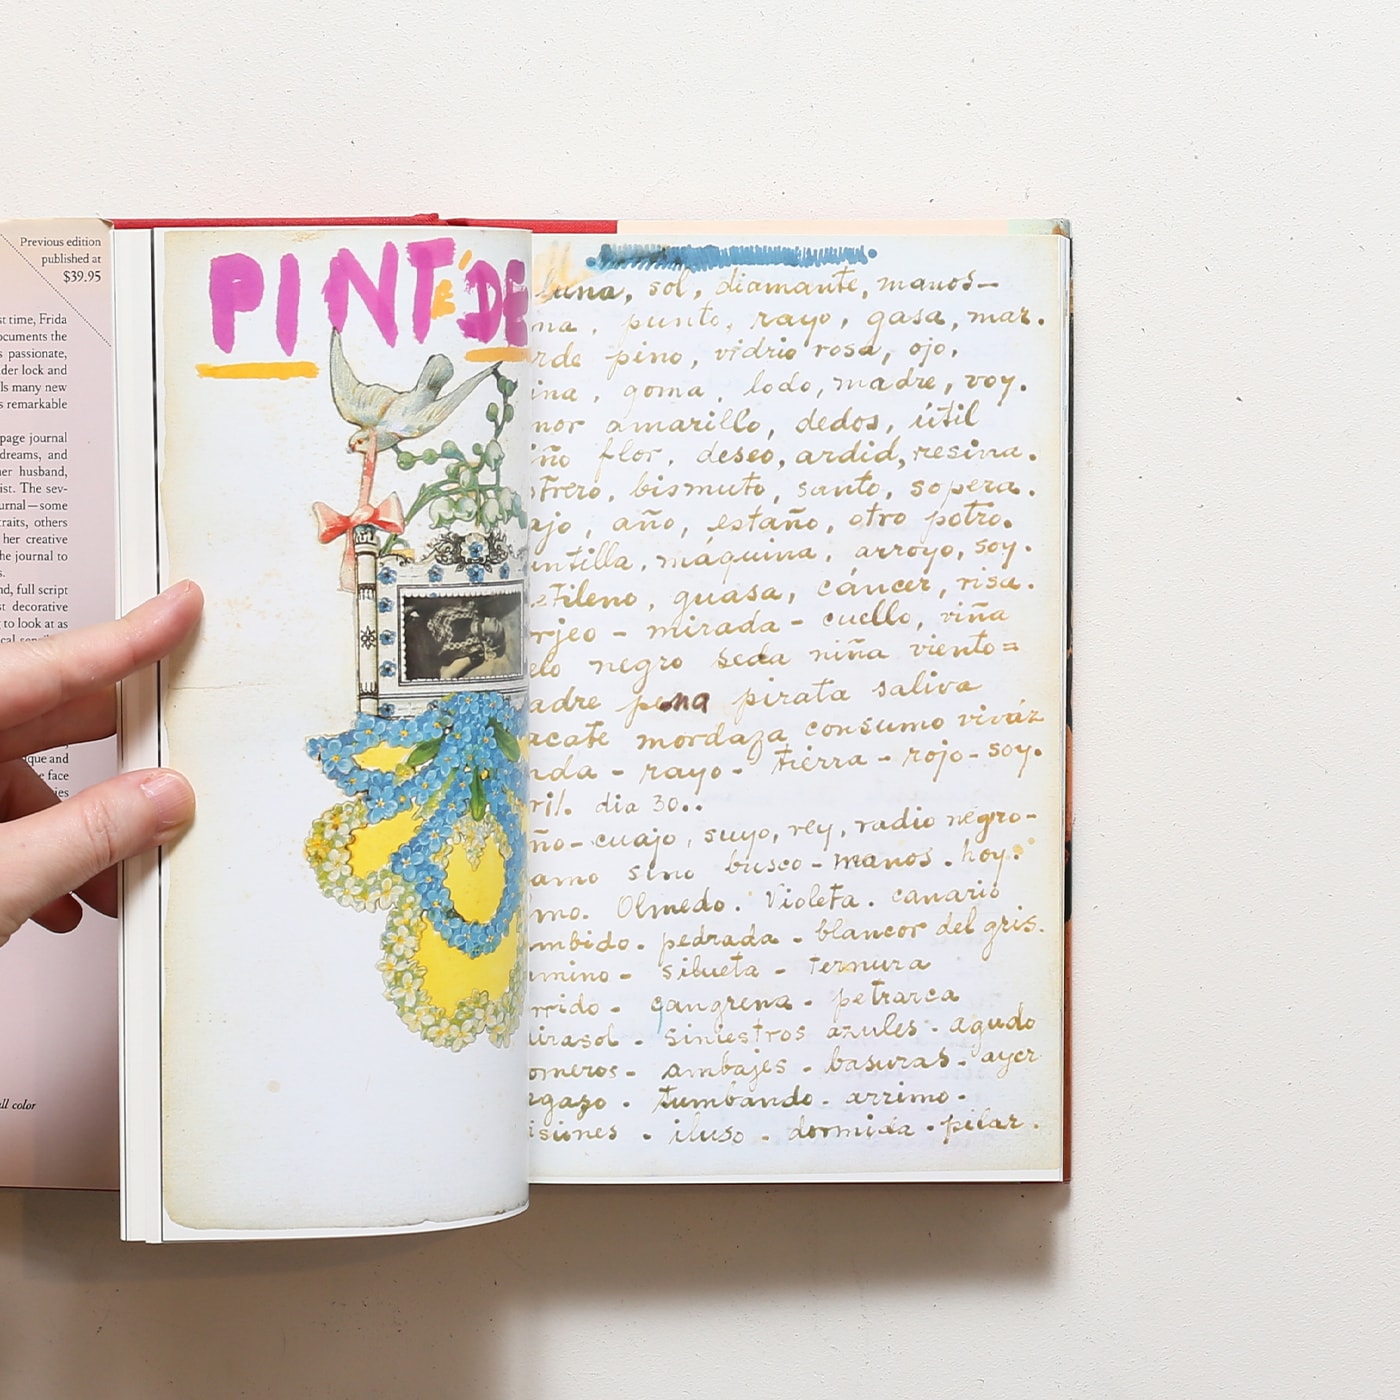 Previous edition
published at
$39.95
st time, Frida
ocuments the
s passionate,
der lock and
ls many new
s remarkable
page journal
dreams, and
her husband,
ist. The sev-
urnal—some
traits, others
her creative
he journal to
s.
nd, full script
st decorative
to look at as
que and
e face
ies
ll color
PINTÉ DE
luna, sol, diamante, manos-
na, punto, rayo, gasa, mar.
rde pino, vidrio rosa, ojo,
ina, goma, lodo, madre, voy.
mor amarillo, dedos, útil
iño flor, deseo, ardid, resina.
strero, bismuto, santo, sopera.
ajo, año, estaño, otro potro.
untilla, máquina, arroyo, soy.
etileno, guasa, cáncer, risa.
orjeo - mirada - cuello, viña
elo negro seda niña viento=
adre pena pirata saliva
acate mordaza consumo viváz
nda - rayo - tierra - rojo - soy.
ril. dia 30..
ño - cuajo, suyo, rey, radio negro-
amo sino busco - manos. hoy.
mo. Olmedo. Violeta. canario
mbido. pedrada - blancor del gris.
amino - silueta - ternura
rrido - gangrena - petrarca
irasol - siniestros azules - agudo
omeros - ambajes - basuras - ayer
gazo. tumbando. arrimo -
isiones - iluso - dormida - pilar.